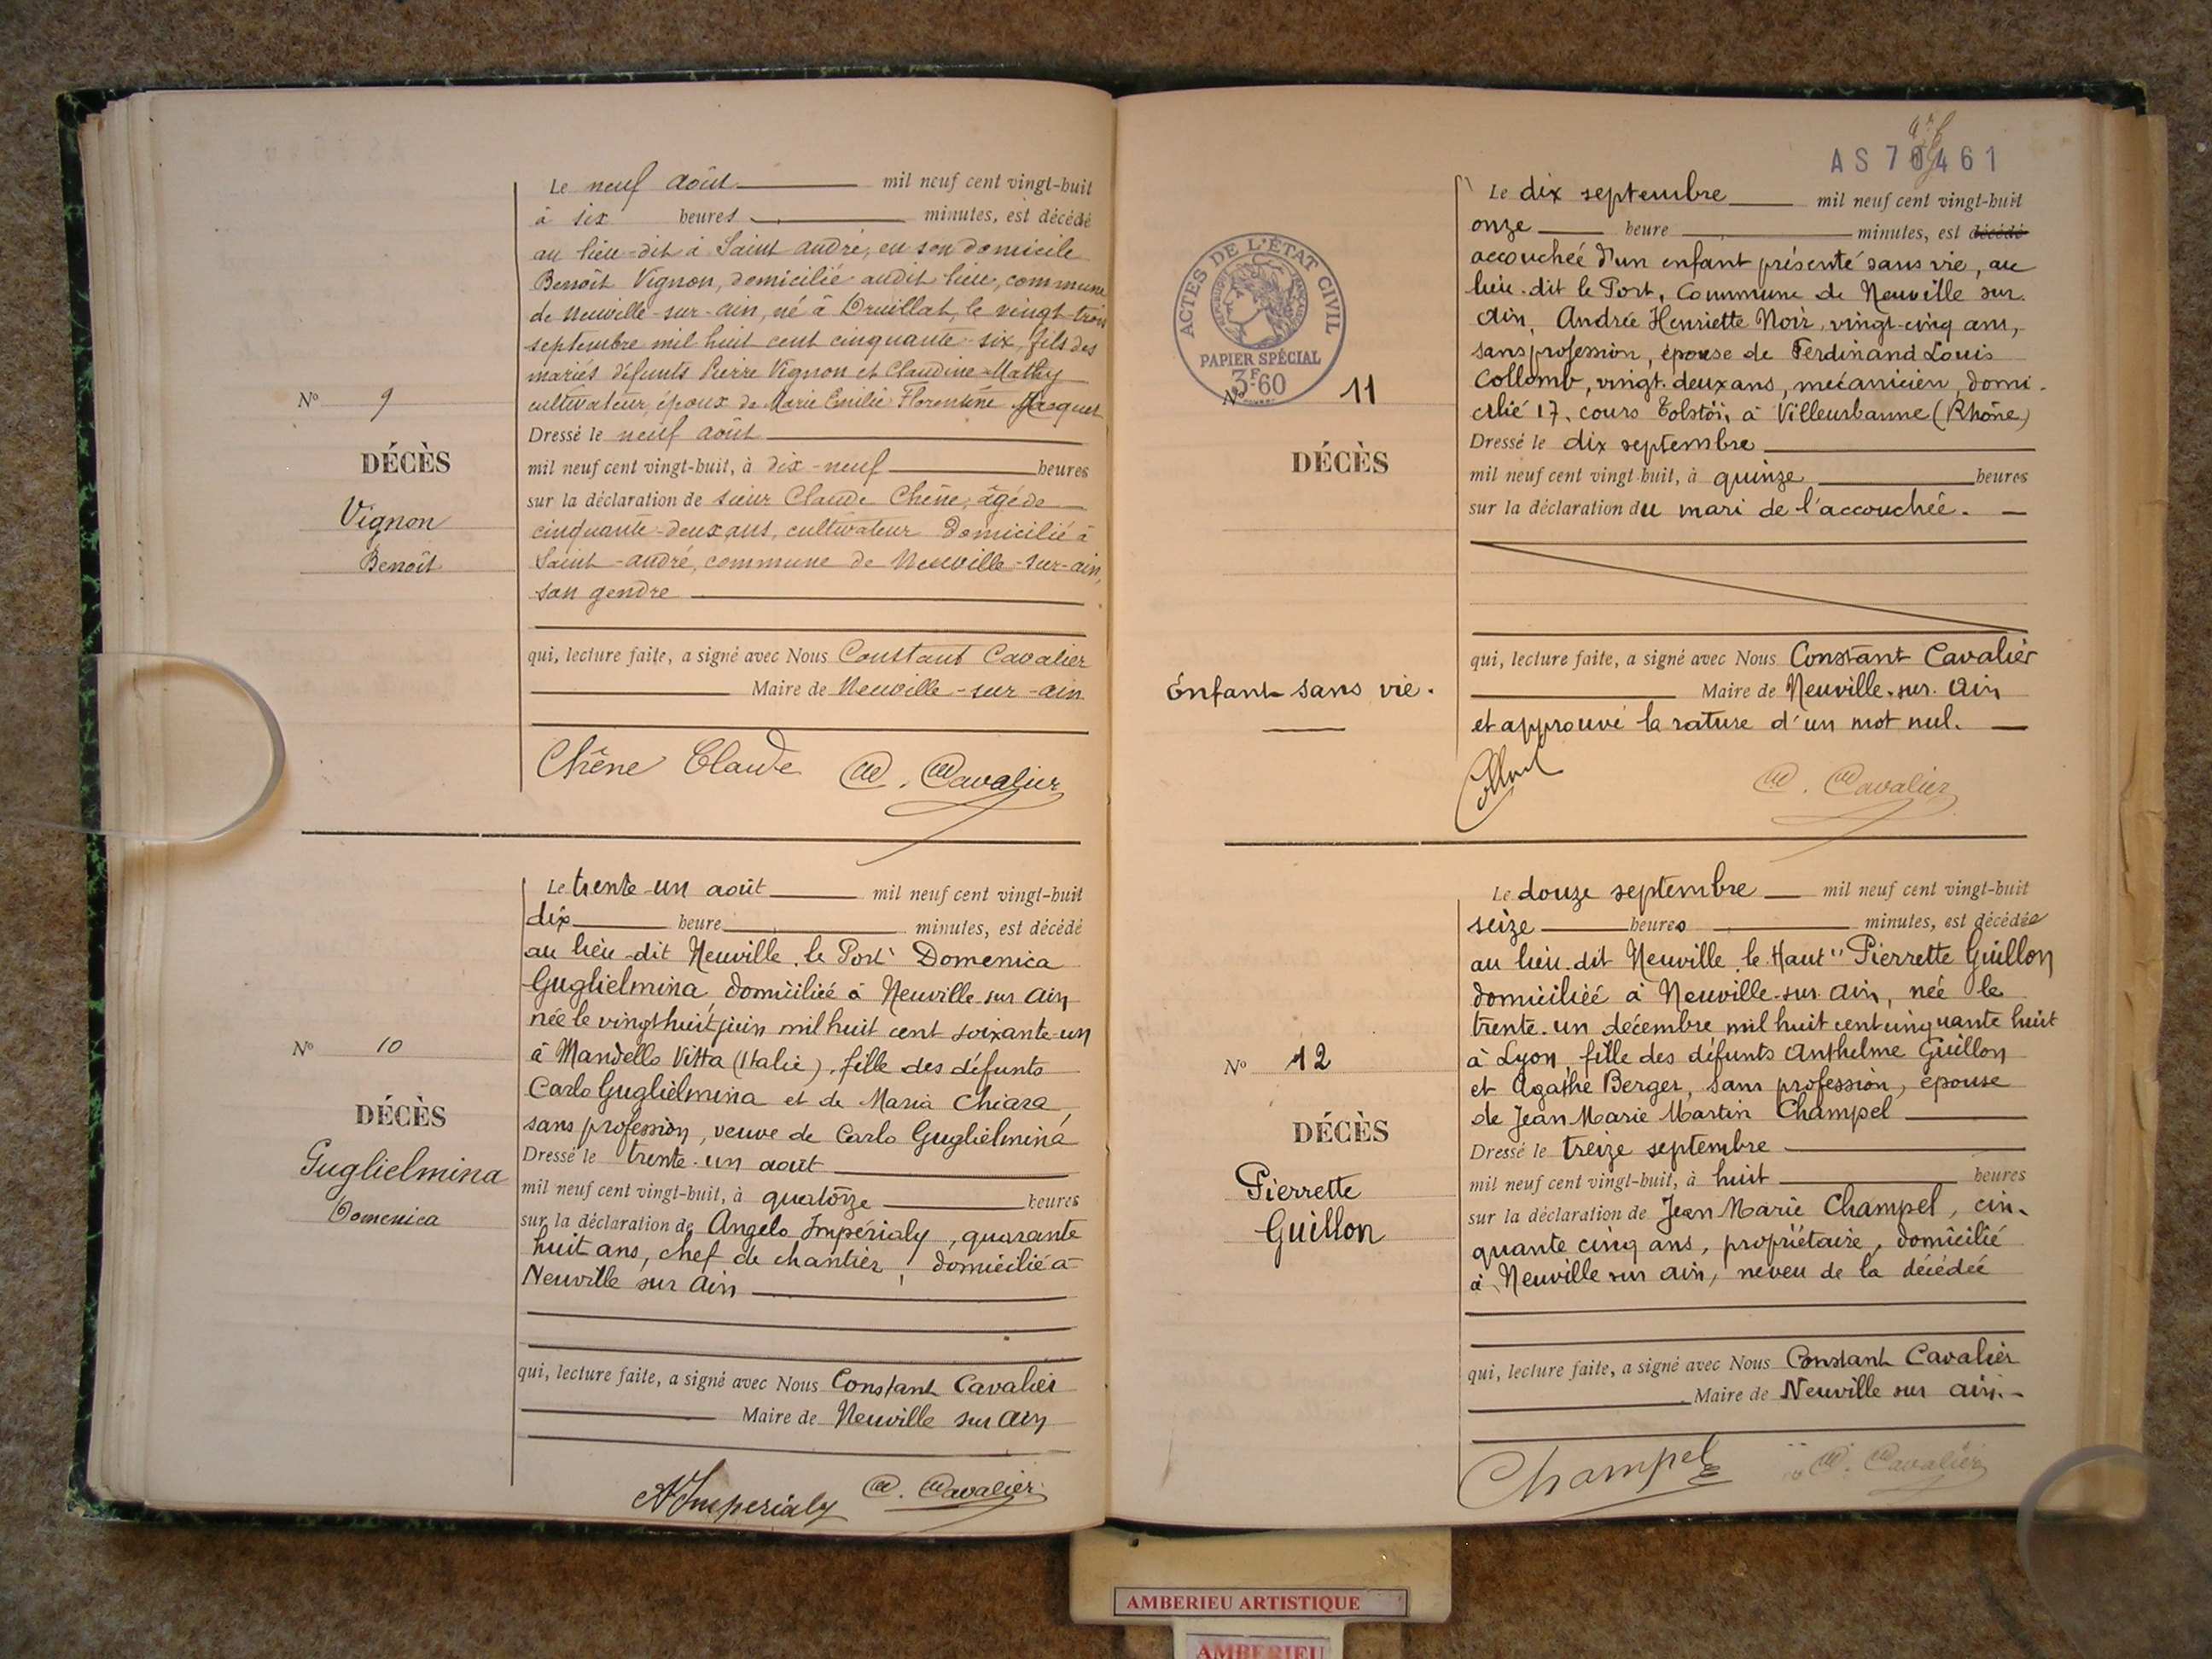 Le neuf août mil neuf cent vingt-huit
à six heures minutes, est décédé
au lieu-dit à Saint andré, en son domicile
Benoît Vignon, domicilié audit lieu, commune
de Neuville-sur-ain, né à Druillat, le vingt-trois
septembre mil huit cent cinquante-six, fils des
mariés défunts Pierre Vignon et Claudine Mathy
cultivateur, époux de Marie Emilie Florentine Jacquet
Nº 9
Dressé le neuf août
DÉCÈS
mil neuf cent vingt-huit, à dix-neuf heures
sur la déclaration de sieur Claude Chêne, âgé de
Vignon
cinquante-deux ans, cultivateur domicilié à
Benoît
Saint-andré, commune de Neuville-sur-ain,
son gendre
qui, lecture faite, a signé avec Nous Constant Cavalier
Maire de Neuville-sur-ain
Chêne Claude Cavalier
Le trente-un août mil neuf cent vingt-huit
dix heure minutes, est décédé
au lieu-dit Neuville le Port Domenica
Guglielmina domiciliée à Neuville-sur Ain
née le vingt huit juin mil huit cent soixante-un
à Mandello Vitta (Italie), fille des défunts
Nº 10
Carlo Guglielmina et de Maria Chiara,
sans profession, veuve de Carlo Guglielmina
DÉCÈS
Dressé le trente-un août
Guglielmina
mil neuf cent vingt-huit, à quatorze heures
Domenica
sur la déclaration de Angelo Impérialy, quarante
huit ans, chef de chantier, domicilié à
Neuville sur Ain
qui, lecture faite, a signé avec Nous Constant Cavalier
Maire de Neuville sur Ain
Imperialy Cavalier
AS 70461
ACTES DE L'ÉTAT CIVIL
RÉPUBLIQUE FRANÇAISE
PAPIER SPÉCIAL
3F60
Le dix septembre mil neuf cent vingt-huit
onze heure minutes, est décédé
accouchée d'un enfant présenté sans vie, au
lieu-dit le Port, Commune de Neuville sur
Ain, Andrée Henriette Noir, vingt-cinq ans,
sans profession, épouse de Ferdinand Louis
Nº 11
Collomb, vingt-deux ans, mécanicien, domi-
cilié 17, cours Tolstoï, à Villeurbanne (Rhône)
DÉCÈS
Dressé le dix septembre
mil neuf cent vingt-huit, à quinze heures
sur la déclaration du mari de l'accouchée.
qui, lecture faite, a signé avec Nous Constant Cavalier
Enfant sans vie.
Maire de Neuville-sur-Ain
et approuvé la rature d'un mot nul.
Cavalier
Le douze septembre mil neuf cent vingt-huit
seize heures minutes, est décédée
au lieu-dit Neuville le Haut" Pierrette Guillon
domiciliée à Neuville-sur-Ain, née le
trente-un décembre mil huit cent cinquante huit
à Lyon, fille des défunts Anthelme Guillon
Nº 12
et Agathe Berger, sans profession, épouse
de Jean Marie Martin Champel
DÉCÈS
Dressé le treize septembre
Pierrette
mil neuf cent vingt-huit, à huit heures
Guillon
sur la déclaration de Jean Marie Champel, cin-
quante cinq ans, propriétaire, domicilié
à Neuville sur Ain, neveu de la décédée
qui, lecture faite, a signé avec Nous Constant Cavalier
Maire de Neuville sur Ain.
Champel Cavalier
AMBERIEU ARTISTIQUE
AMBERIEU